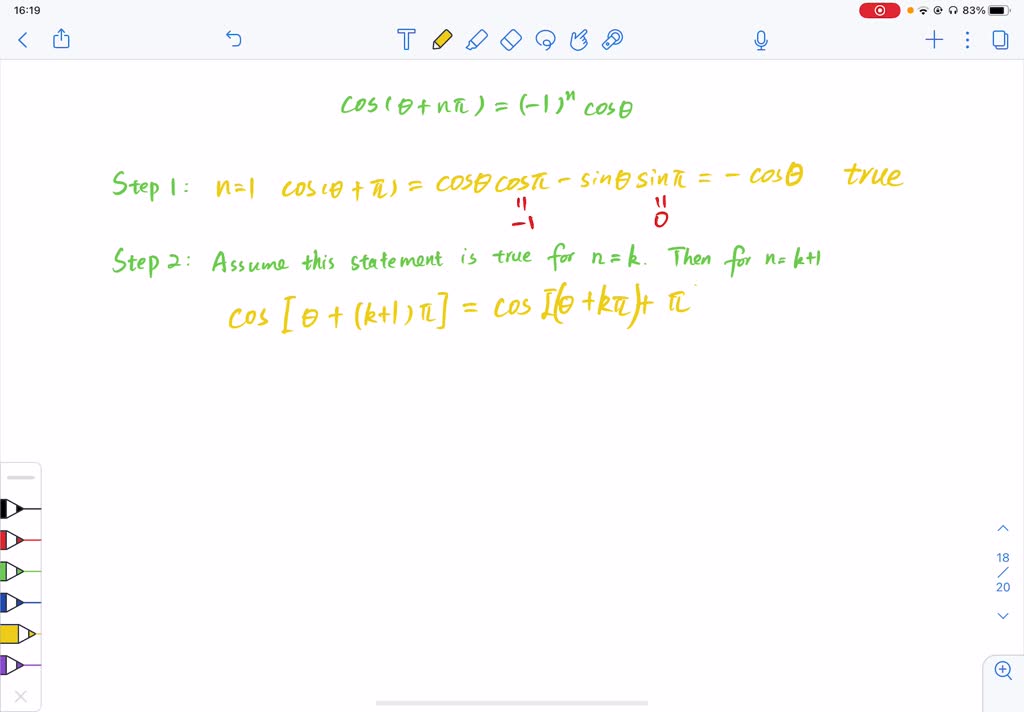 16:19
83%
T
cos(θ+nπ) = (-1)ⁿ cosθ
Step 1: n=1 cos(θ+π) = cosθ cosπ - sinθ sinπ = - cosθ true
" "
-1 0
Step 2: Assume this statement is true for n=k. Then for n=k+1
cos [θ + (k+1)π] = cos [(θ+kπ)+ π
18
/
20